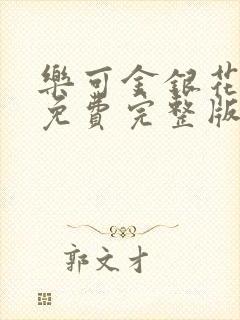 樂可金銀花
免費完整版
郭文才